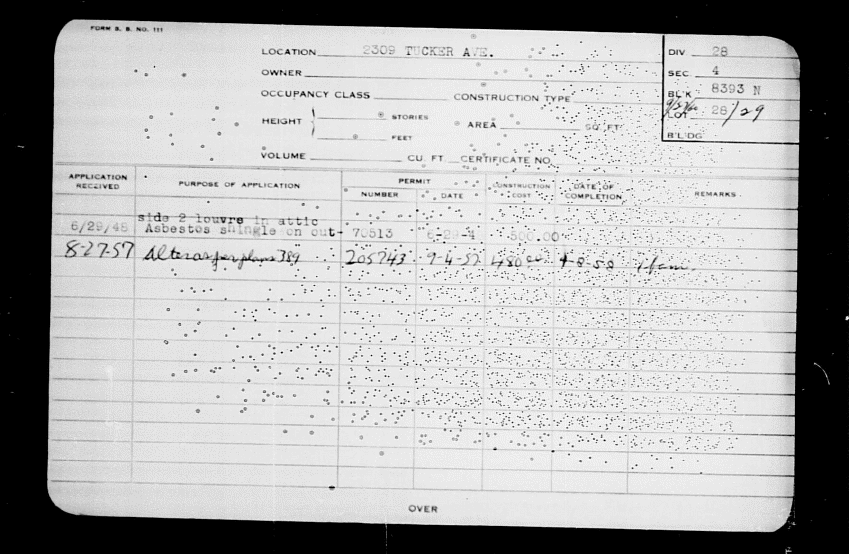 FORM S. B. NO. 111
LOCATION 2309 TUCKER AVE.
DIV 28
OWNER
SEC 4
OCCUPANCY CLASS CONSTRUCTION TYPE
BLK 8393 N
LOT 28/29
HEIGHT STORIES
FEET
AREA SQ. FT.
BLDG
VOLUME CU. FT. CERTIFICATE NO.
APPLICATION RECEIVED PURPOSE OF APPLICATION PERMIT NUMBER DATE CONSTRUCTION COST DATE OF COMPLETION REMARKS
side 2 louvre in attic
6/29/48 Asbestos shingle on out- 70513 500.00
8-27-57 Alter as per plans 389 205743 9-4-57 480.00
OVER